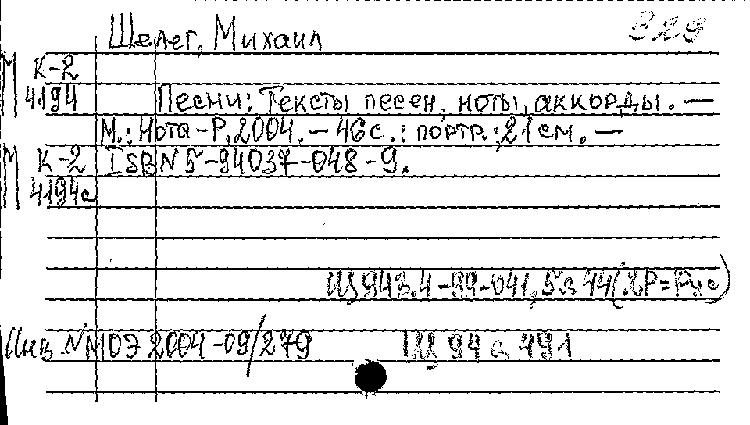 Шелег, Михаил 329
М К-2
4194 Песни: Тексты песен, ноты, аккорды. —
М.: Нота-Р, 2004. — 46 с.: портр.; 21 см. —
М К-2 ISBN 5-94037-048-9.
4194а
Щ943.4-99-041,5я44(
Инв. № МОЭ 2004-09/279 Щ 94 а 491